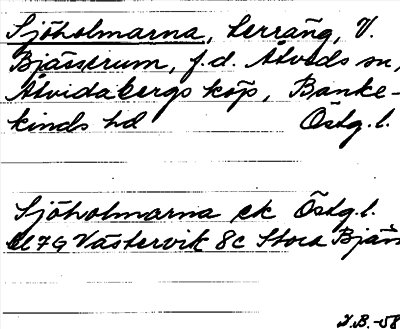 Sjöholmarna, terräng, V.
Bjässerum, f.d. Åtvids sn,
Åtvidabergs köp, Banke-
kinds hd Östg.l.
Sjöholmarna ek Östg.l.
7G Västervik 8c Stora Bjäs
J.B.-58